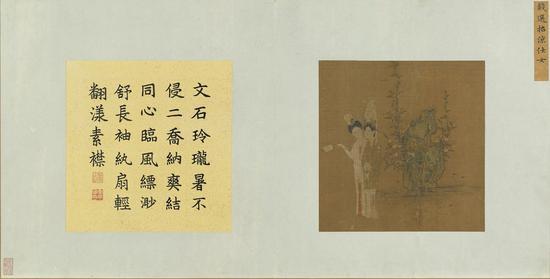 錢選招涼仕女
文石玲瓏暑不
侵二喬納爽結
同心臨風縹渺
舒長袖紈扇輕
翻漾素襟